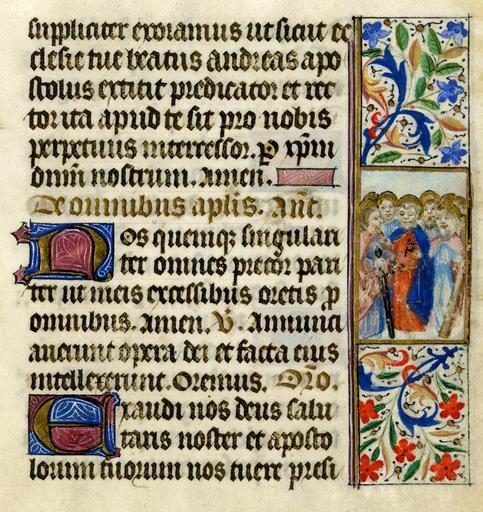 suppliciter exoramus ut sicut ec
clesie tue beatus andreas apo
stolus extitit predicator et rec
tor ita apud te sit pro nobis
perpetuus intercessor. p xpm
dnm nostrum. Amen.
De omnibus aplis. Ant.
Vos quemq singulari
ter omnes precor pari
ter ut meis excessibus oretis p
omnibus. Amen. V. Annunci
averunt opera dei et facta eius
intellexerunt. Oremus. Oro.
Exaudi nos deus salu
taris noster et aposto
lorum tuorum nos tuere presi